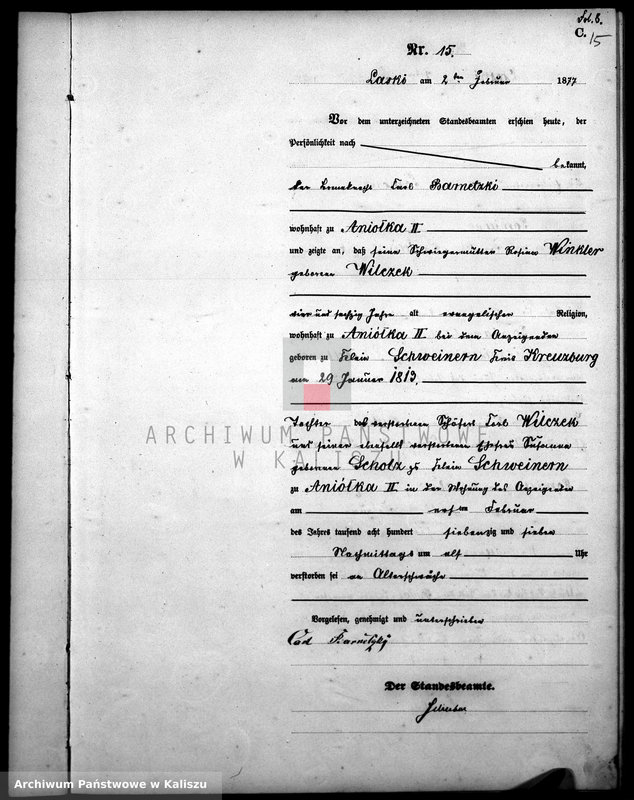 Fol. 8.
C. 15
Nr. 15.
Laski am 2 ten Februar 1877
Vor dem unterzeichneten Standesbeamten erschien heute, der
Persönlichkeit nach
bekannt,
der Carl Barnetzki
wohnhaft zu Aniołka II
und zeigte an, daß seine Schwiegermutter Rosina Winkler
geborene Wilczek
vier und sechzig Jahre alt evangelischer Religion,
wohnhaft zu Aniółka II bei dem Anzeigenden
geboren zu Klein Schweinern Kreis Kreuzburg
am 29 Januar 1813.
Tochter des verstorbenen Schäfers Carl Wilczek
und seiner ebenfalls verstorbenen Ehefrau Susanna
geborenen Scholz zu Klein Schweinern
zu Aniółka II in der Wohnung des Anzeigenden
am ersten Februar
des Jahres tausend acht hundert siebenzig und sieben
Nachmittags um elf Uhr
verstorben sei an Altersschwäche
Vorgelesen, genehmigt und unterschrieben
Der Standesbeamte.
ARCHIWUM PAŃSTWOWE
W KALISZU
Archiwum Państwowe w Kaliszu